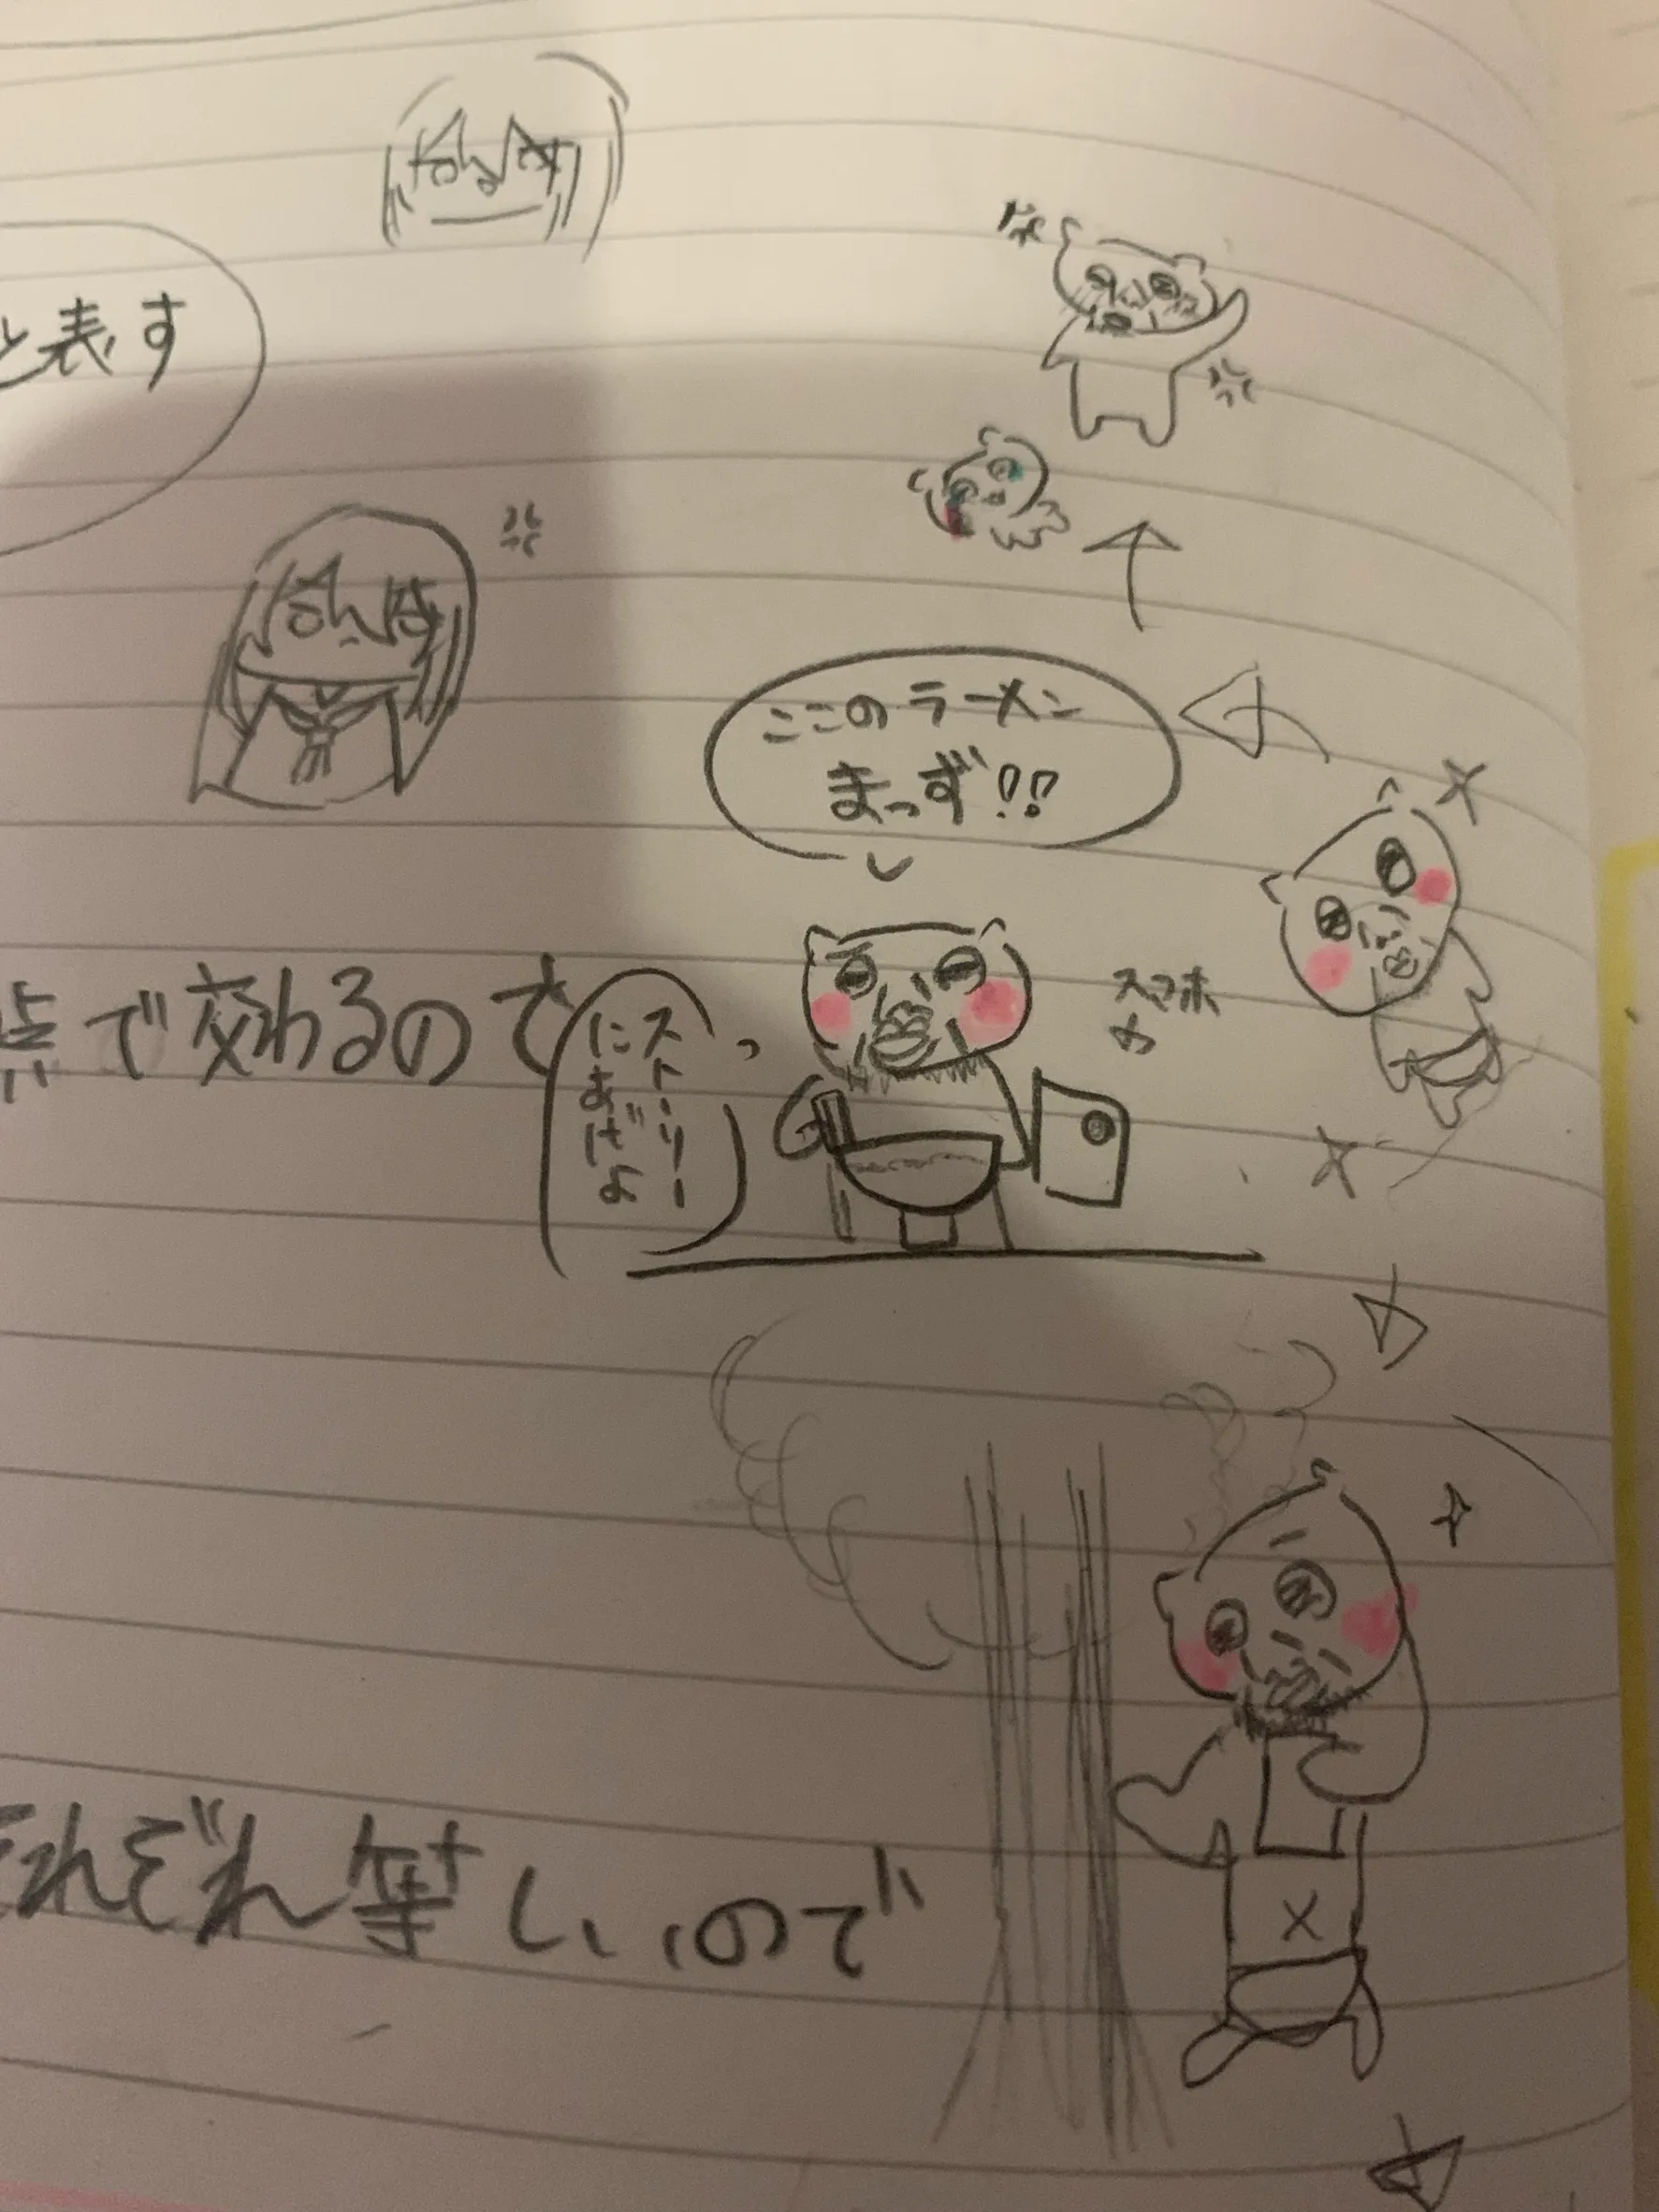 と表す
なんなん
なんな
ここのラーメン
まっず!!
スマホ
点で交わるので
ストーリー
にあげよ
それぞれ等しいので